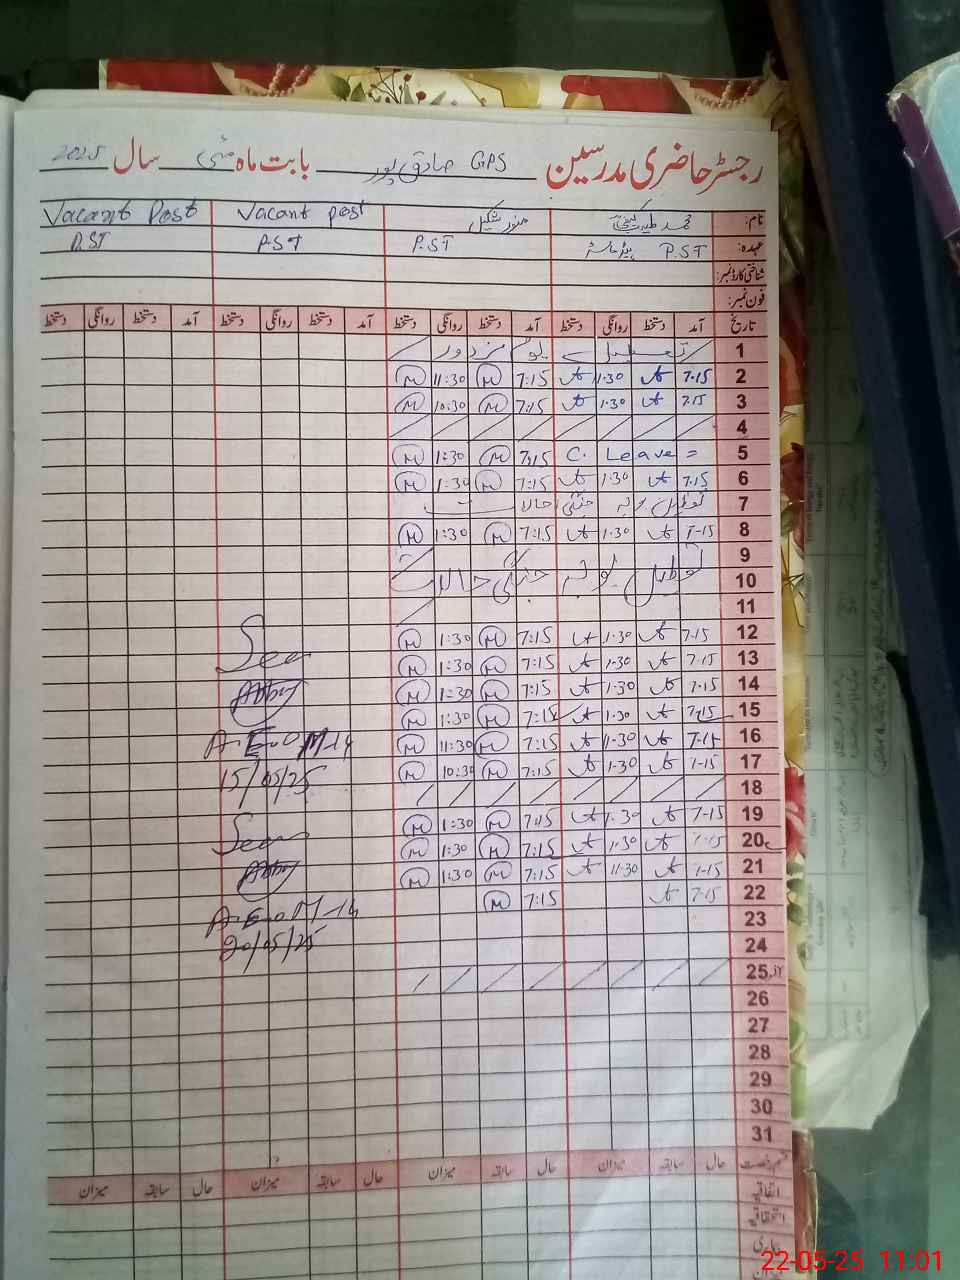 رجسٹر حاضری مدرسین GPS صادق پور بابت ماہ مئی سال 2025
نام: محمد طیب منور شکیل Vacant post Vacant Post
عہدہ: P.ST ہیڈ ماسٹر P.ST P.ST P.ST
شناختی کارڈ نمبر:
فون نمبر:
تاریخ آمد دستخط روانگی دستخط آمد دستخط روانگی دستخط آمد دستخط روانگی دستخط آمد دستخط روانگی دستخط
1 تعطیل یوم مزدور
2 7.15 1.30 7:15 M 11:30 M
3 7.15 1.30 7:15 M 10:30 M
4
5 C. Leave = 7:15 M 1:30 M
6 7.15 1.30 7:15 M 1:30 M
7 تعطیل بوجہ جنگی حالات
8 7-15 1.30 7:15 M 1:30 M
9
10 تعطیل بوجہ جنگی حالات
11
12 7.15 1.30 7:15 M 1:30 M
13 7.15 1.30 7:15 M 1:30 M Seen
14 7.15 1.30 7:15 M 1:30 M
15 7.15 1.30 7:15 M 1:30 M
16 7.15 11.30 7:15 M 11:30 M A.E.O M-14
17 7-15 1.30 7:15 M 10:30 M 15/05/25
18
19 7-15 1.30 7:15 M 1:30 M
20 7-15 1.30 7:15 M 1:30 M Seen
21 7-15 11.30 7:15 M 1:30 M
22 7-15 7:15 M
23 A.E.O M-14
24 20/05/25
25
26
27
28
29
30
31
قسم رخصت حال سابقہ میزان حال سابقہ میزان حال سابقہ میزان حال سابقہ میزان
اتفاقیہ
استحقاقیہ
بیماری
22-05-25 11:01